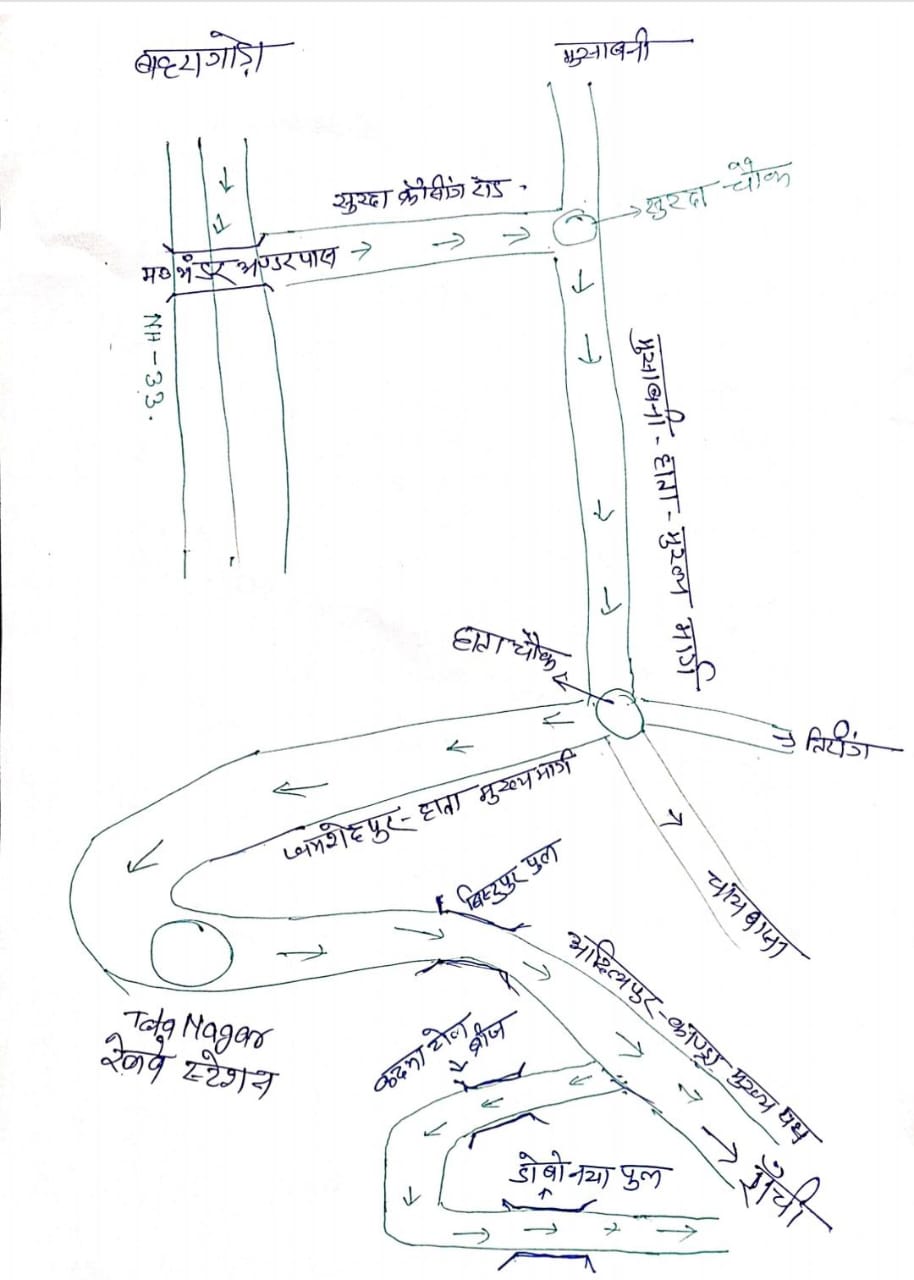 बाहरागोड़ा
मुसाबनी
सुरदा क्रोसिंग रोड
सुरदा चौक
म० भंडर अण्डरपास
NH-33.
मुसाबनी-हाता-मुख्य मार्ग
हाता चौक
तिरींग
जमशेदपुर-हाता मुख्य मार्ग
चांयबासा
बिष्टुपुर पुल
आदित्यपुर-काण्ड्रा मुख्य पथ
Tata Nagar
रेलवे स्टेशन
कदमा टोल
ब्रीज
डोबो नया पुल
राँची